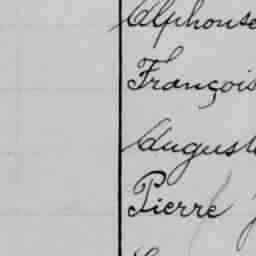 Alphonse
François
Auguste
Pierre